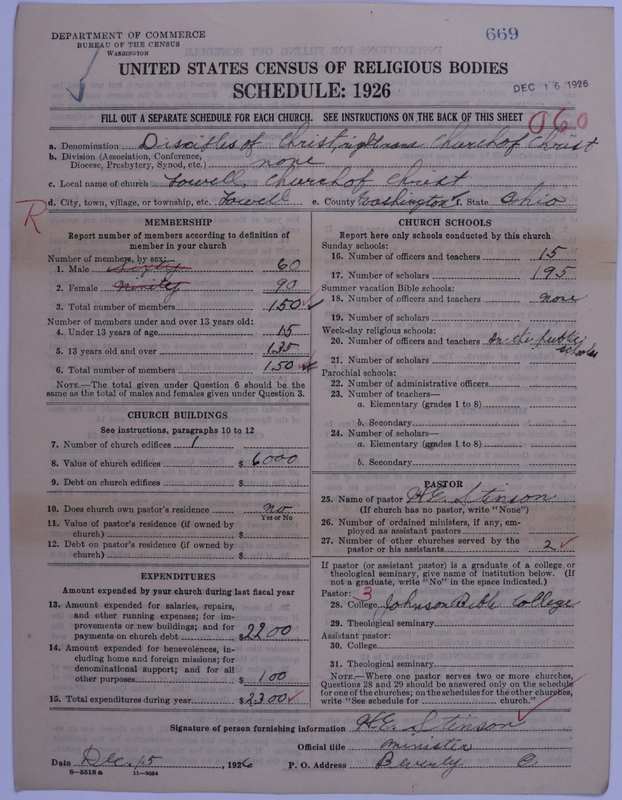 DEPARTMENT OF COMMERCE
BUREAU OF THE CENSUS
WASHINGTON
669
UNITED STATES CENSUS OF RELIGIOUS BODIES
SCHEDULE: 1926
DEC 16 1926
FILL OUT A SEPARATE SCHEDULE FOR EACH CHURCH. SEE INSTRUCTIONS ON THE BACK OF THIS SHEET
060
a. Denomination Disciples of Christ, Church of Christ
b. Division (Association, Conference, Diocese, Presbytery, Synod, etc.) none
c. Local name of church Lowell, Church of Christ
R
d. City, town, village, or township, etc. Lowell e. County Washington f. State Ohio
MEMBERSHIP
Report number of members according to definition of
member in your church
Number of members, by sex:
1. Male sixty 60
2. Female ninety 90
3. Total number of members 150
Number of members under and over 13 years old:
4. Under 13 years of age 15
5. 13 years old and over 135
6. Total number of members 150
NOTE.—The total given under Question 6 should be the
same as the total of males and females given under Question 3.
CHURCH BUILDINGS
See instructions, paragraphs 10 to 12
7. Number of church edifices 1
8. Value of church edifices $ 6000
9. Debt on church edifices $
10. Does church own pastor's residence no
Yes or No
11. Value of pastor's residence (if owned by
church) $
12. Debt on pastor's residence (if owned by
church) $
EXPENDITURES
Amount expended by your church during last fiscal year
13. Amount expended for salaries, repairs,
and other running expenses; for im-
provements or new buildings; and for
payments on church debt $ 2200
14. Amount expended for benevolences, in-
cluding home and foreign missions; for
denominational support; and for all
other purposes $ 100
15. Total expenditures during year $ 2300
CHURCH SCHOOLS
Report here only schools conducted by this church
Sunday schools:
16. Number of officers and teachers 15
17. Number of scholars 195
Summer vacation Bible schools:
18. Number of officers and teachers none
19. Number of scholars
Week-day religious schools:
20. Number of officers and teachers In the public schools
21. Number of scholars
Parochial schools:
22. Number of administrative officers
23. Number of teachers—
a. Elementary (grades 1 to 8)
b. Secondary
24. Number of scholars—
a. Elementary (grades 1 to 8)
b. Secondary
PASTOR
25. Name of pastor H.E. Stinson
(If church has no pastor, write "None")
26. Number of ordained ministers, if any, em-
ployed as assistant pastors
27. Number of other churches served by the
pastor or his assistants 2
If pastor (or assistant pastor) is a graduate of a college or
theological seminary, give name of institution below. (If
not a graduate, write "No" in the space indicated.)
Pastor: 3
28. College Johnson Bible College
29. Theological seminary
Assistant pastor:
30. College
31. Theological seminary
NOTE.—Where one pastor serves two or more churches,
Questions 28 and 29 should be answered only on the schedule
for one of the churches; on the schedules for the other churches,
write "See schedule for church."
Signature of person furnishing information H.E. Stinson
Official title minister
Date Dec. 15, 1926 P. O. Address Beverly O
8-5518 a 11-9054